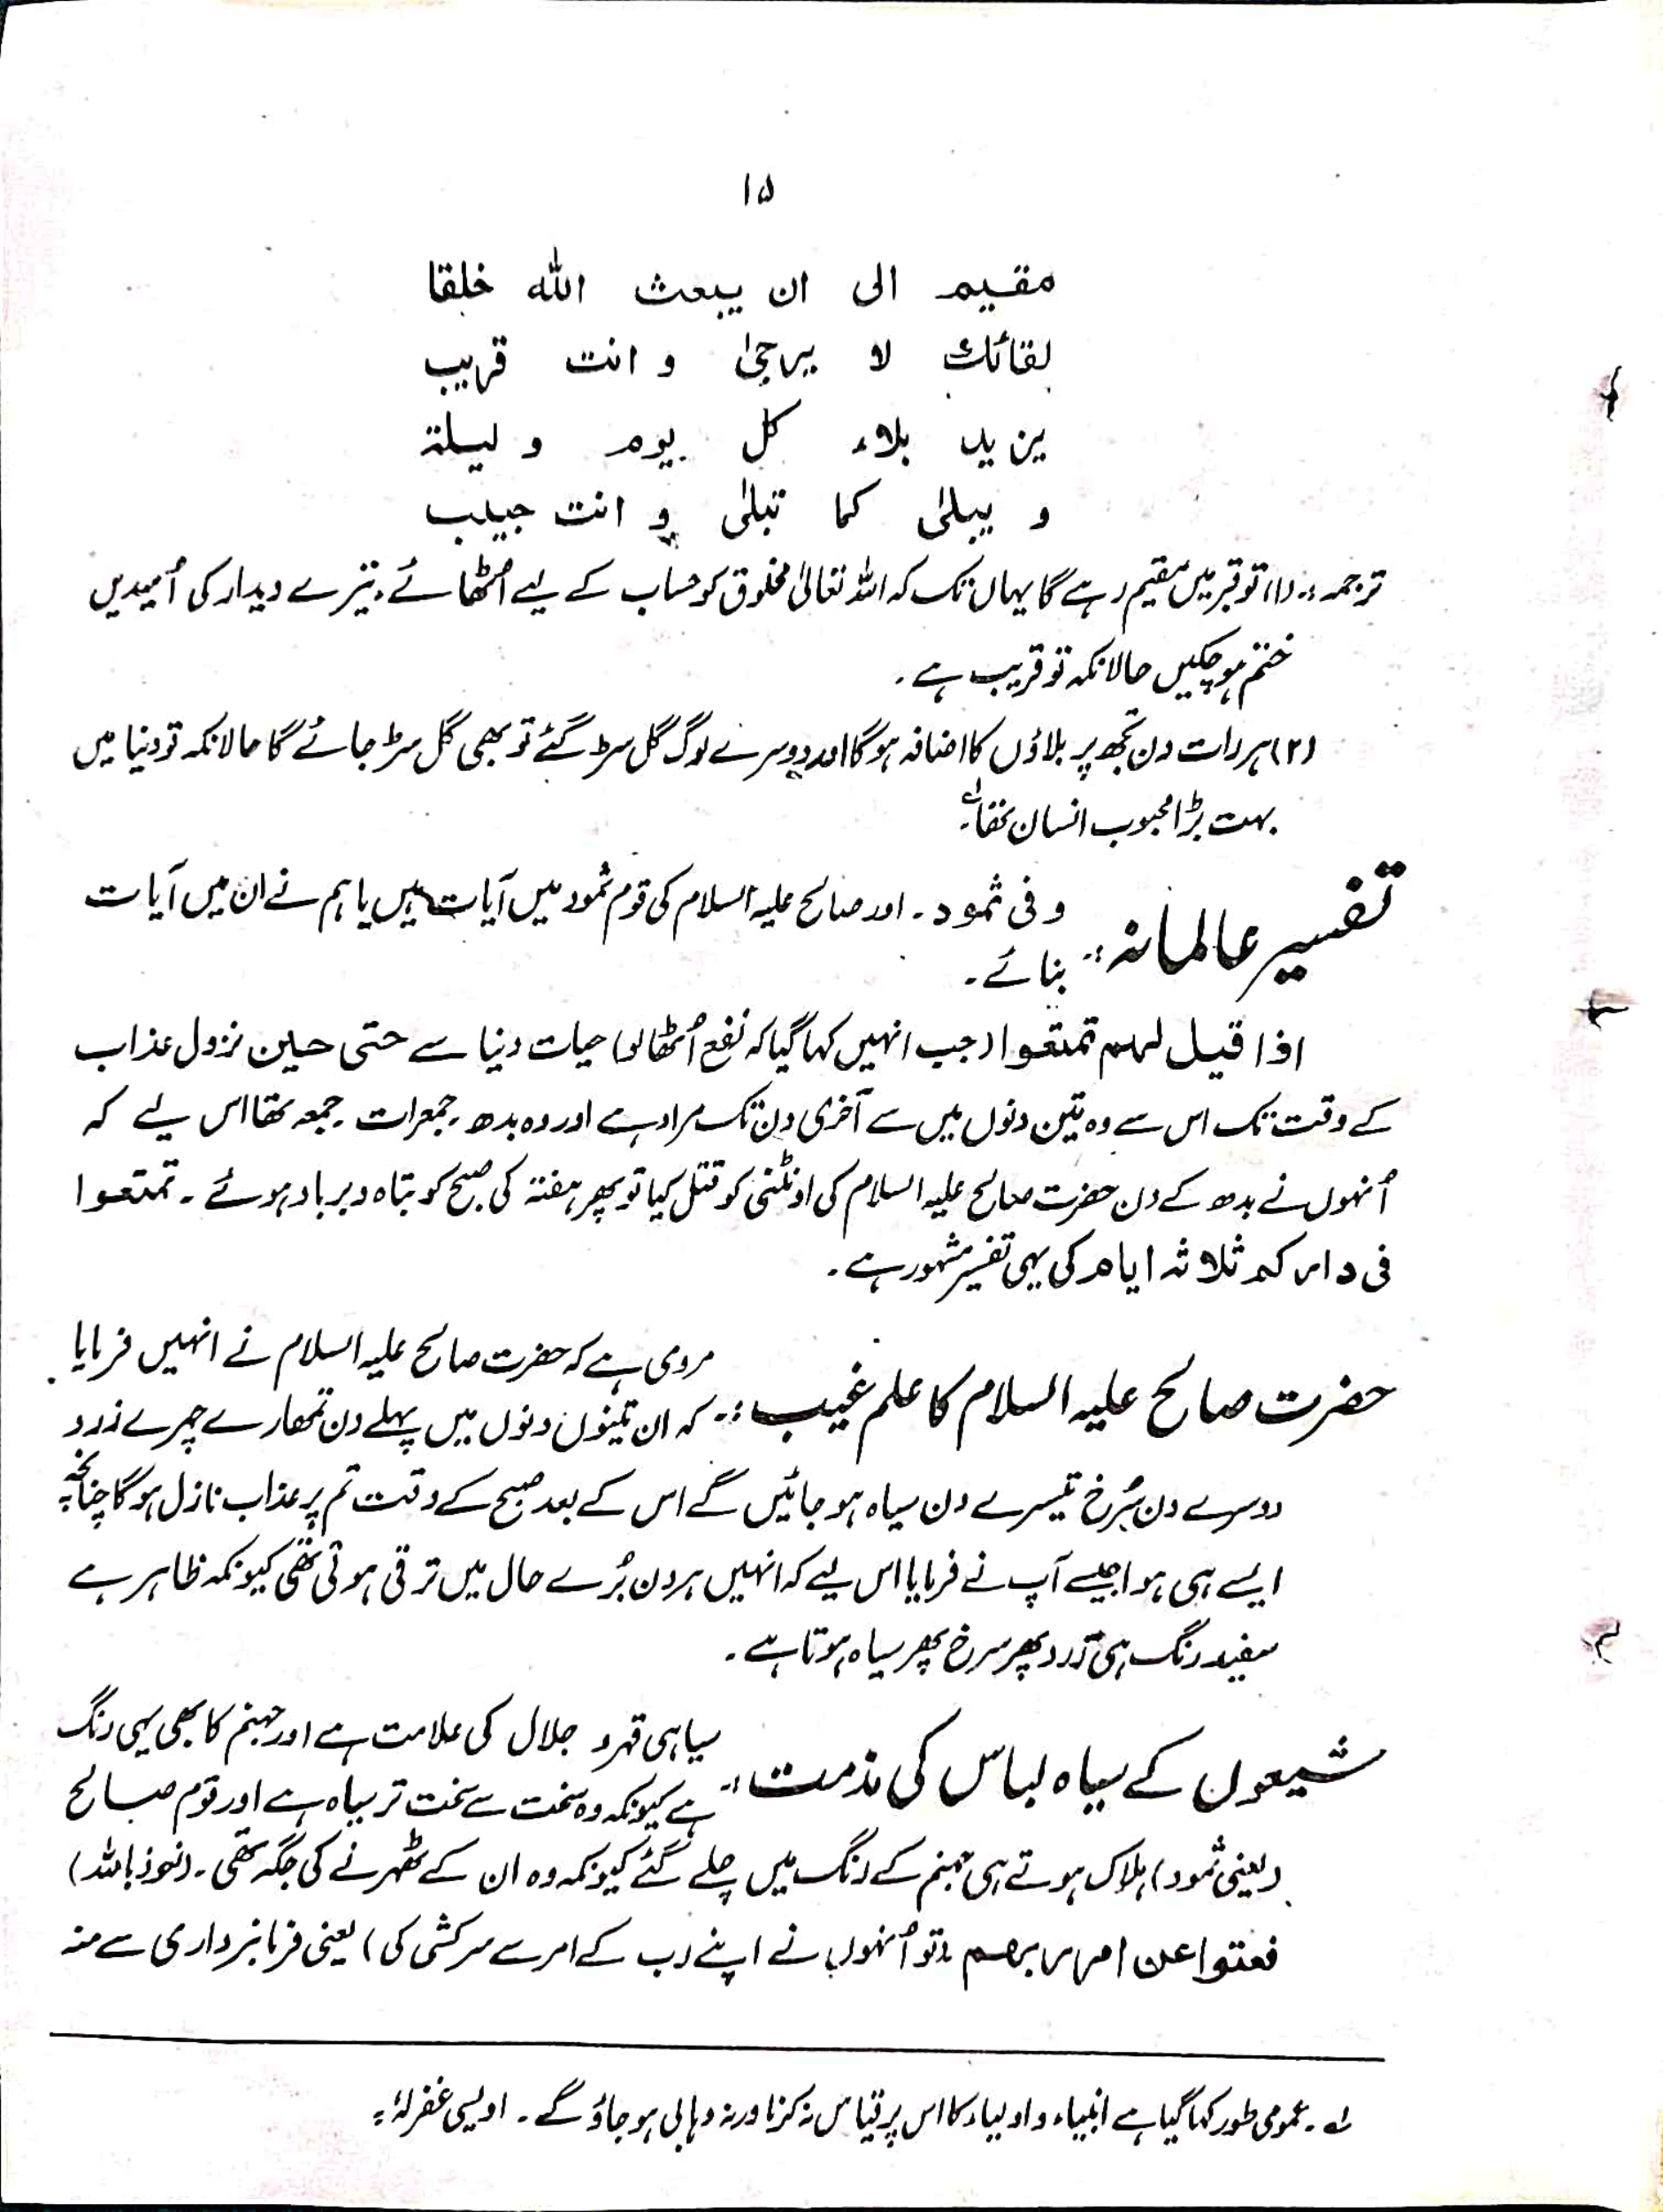 ۱۵
مقیم الی ان یبعث اللہ خلقا
لقائک لا یرجیٰ و انت قریب
یزید بلاء کل یوم و لیلۃ
و یبلیٰ کما تبلیٰ و انت حبیب
ترجمہ :۔ (۱) تو قبر میں مقیم رہے گا یہاں تک کہ اللہ تعالیٰ مخلوق کو حساب کے لیے اُٹھائے ۔ تیرے دیدار کی اُمیدیں
ختم ہو چکیں حالانکہ تو قریب ہے ۔
(۲) ہر رات دن تجھ پر بلاؤں کا اضافہ ہوگا اور دوسرے لوگ گل سڑ گئے تو بھی گل سڑ جائے گا حالانکہ تو دنیا میں
بہت بڑا محبوب انسان تھا ۔ لہ
تفسیر عالمانہ :۔ و فی ثمود ۔ اور صالح علیہ السلام کی قوم ثمود میں آیات ہیں یا ہم نے ان میں آیات
بنائے ۔
اذا قیل لہم تمتعوا (جب انہیں کہا گیا کہ نفع اُٹھا لو) حیات دنیا سے حتی حین نزول عذاب
کے وقت تک اس سے وہ تین دنوں میں سے آخری دن تک مراد ہے اور وہ بدھ ۔ جمعرات ۔ جمعہ تھا اس لیے کہ
اُنہوں نے بدھ کے دن حضرت صالح علیہ السلام کی اونٹنی کو قتل کیا تو پھر ہفتہ کی صبح کو تباہ و برباد ہوئے ۔ تمتعوا
فی دارکم ثلاثہ ایام کی یہی تفسیر مشہور ہے ۔
حضرت صالح علیہ السلام کا علم غیب :۔ مروی ہے کہ حضرت صالح علیہ السلام نے انہیں فرمایا
کہ ان تینوں دنوں میں پہلے دن تمھارے چہرے زرد
دوسرے دن سُرخ تیسرے دن سیاہ ہو جائیں گے اس کے بعد صبح کے وقت تم پر عذاب نازل ہوگا چنانچہ
ایسے ہی ہوا جیسے آپ نے فرمایا اس لیے کہ انہیں ہر دن بُرے حال میں ترقی ہوتی تھی کیونکہ ظاہر ہے
سفید رنگ ہی زرد پھر سرخ پھر سیاہ ہوتا ہے ۔
شیعوں کے سیاہ لباس کی مذمت :۔ سیاہی قہر و جلال کی علامت ہے اور جہنم کا بھی یہی رنگ
ہے کیونکہ وہ سخت سے سخت تر سیاہ ہے اور قوم صالح
(یعنی ثمود) ہلاک ہوتے ہی جہنم کے رنگ میں چلے گئے کیونکہ وہ ان کے ٹھہرنے کی جگہ تھی ۔ (نعوذ باللہ)
فعتوا عن امر ربھم (تو اُنہوں نے اپنے رب کے امر سے سرکشی کی) یعنی فرمانبرداری سے منہ
لہ ۔ عمومی طور کہا گیا ہے انبیاء و اولیاء کا اس پر قیاس نہ کرنا ورنہ وہابی ہو جاؤ گے ۔ اویسی غفرلہٗ ۔